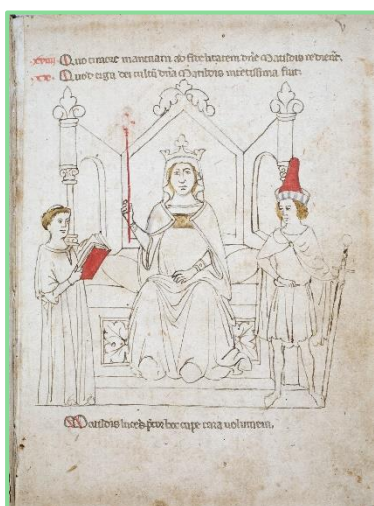 .xviiii. Quo timore mantuani ad fidelitatem dn̄e Matildis redierūt.
.xx. Quod erga dei cultū dn̄a Matildis intētissima fuit.
Matildis lucēs p̄cor hoc cape cara uolumen.